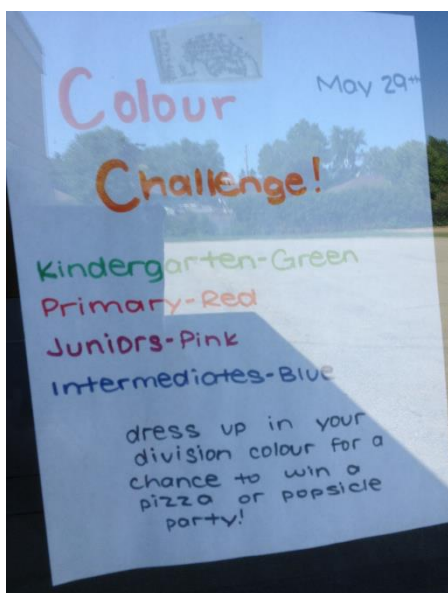 May 29th
Colour
Challenge!
Kindergarten-Green
Primary-Red
Juniors-Pink
Intermediates-Blue
dress up in your
division colour for a
chance to win a
pizza or popsicle
party!